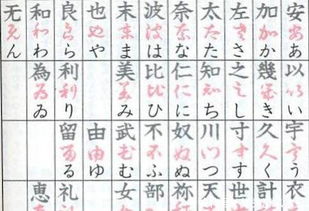 安ああ 以いい 宇うう 衣
加かか 幾きき 久くく 計
左ささ 之しし 寸すす 世
太たた 知ちち 川つつ 天
奈なな 仁にに 奴ぬぬ 祢
波はは 比ひひ 不ふふ 部
末まま 美みみ 武むむ 女
也やや 由ゆゆ
良らら 利りり 留るる 礼
和わわ 為ゐゐ 恵
无んん